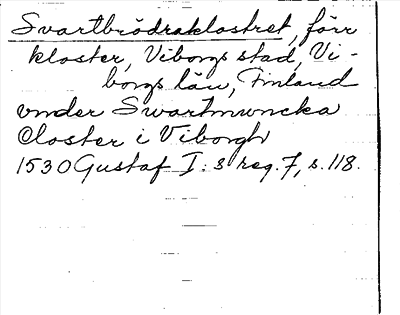 Svartbrödraklostret, förr
kloster, Viborgs stad, Vi-
borgs län, Finland
vnder Swartmuncka
Closter i Viborgh
1530 Gustaf I:s reg. 7, s. 118.